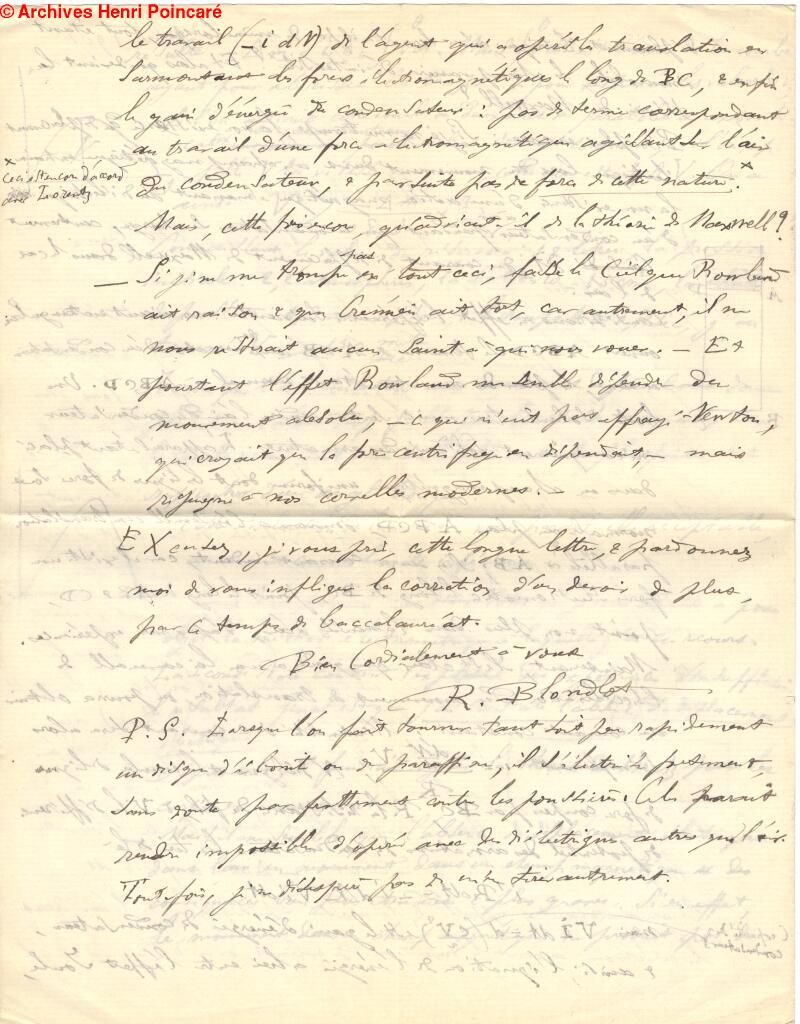 © Archives Henri Poincaré
le travail (– i dN) de l'agent qui a opéré la translation en
surmontant les forces électromagnétiques le long de BC, & enfin
le gain d'énergie du condensateur : pas de terme correspondant
au travail d'une force électromagnétique agissant sur l'air
du condensateur, & par suite pas de force de cette nature.x
x
Ceci est encor d'accord
avec Lorentz
Mais, cette fois encor, qu'advient-il de la théorie de Maxwell ?
— Si je ne me trompe pas en tout ceci, fasse le Ciel que Rowland
ait raison & que Crémieu ait tort, car autrement, il ne
nous resterait aucun Saint à qui nous vouer. — Et
pourtant l'effet Rowland me semble dépendre du
mouvement absolu, — ce qui n'eût pas effrayé Newton,
qui croyait que la force centrifuge en dépendait, — mais
répugne à nos cervelles modernes. —
Excusez, je vous prie, cette longue lettre, & pardonnez
moi de vous infliger la correction d'un devoir de plus,
par ce temps de baccalauréat.
Bien Cordialement à vous
R. Blondlot
P. S. Lorsque l'on fait tourner tant soit peu rapidement
un disque d'ébonite ou de paraffine, il s'électrise fortement,
sans doute par frottement contre les poussières. Cela paraît
rendre impossible d'opérer avec des diélectriques autres que l'air.
Toutefois, je ne désespère pas de m'en tirer autrement.